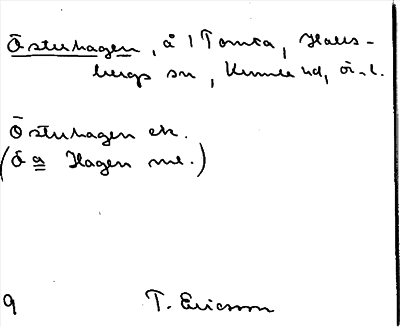 Österhagen, å 1 Tomta, Halls-
bergs sn, Kumla hd, ör. l.
Österhagen ek.
(Ö a Hagen me.)
9 T. Ericsson